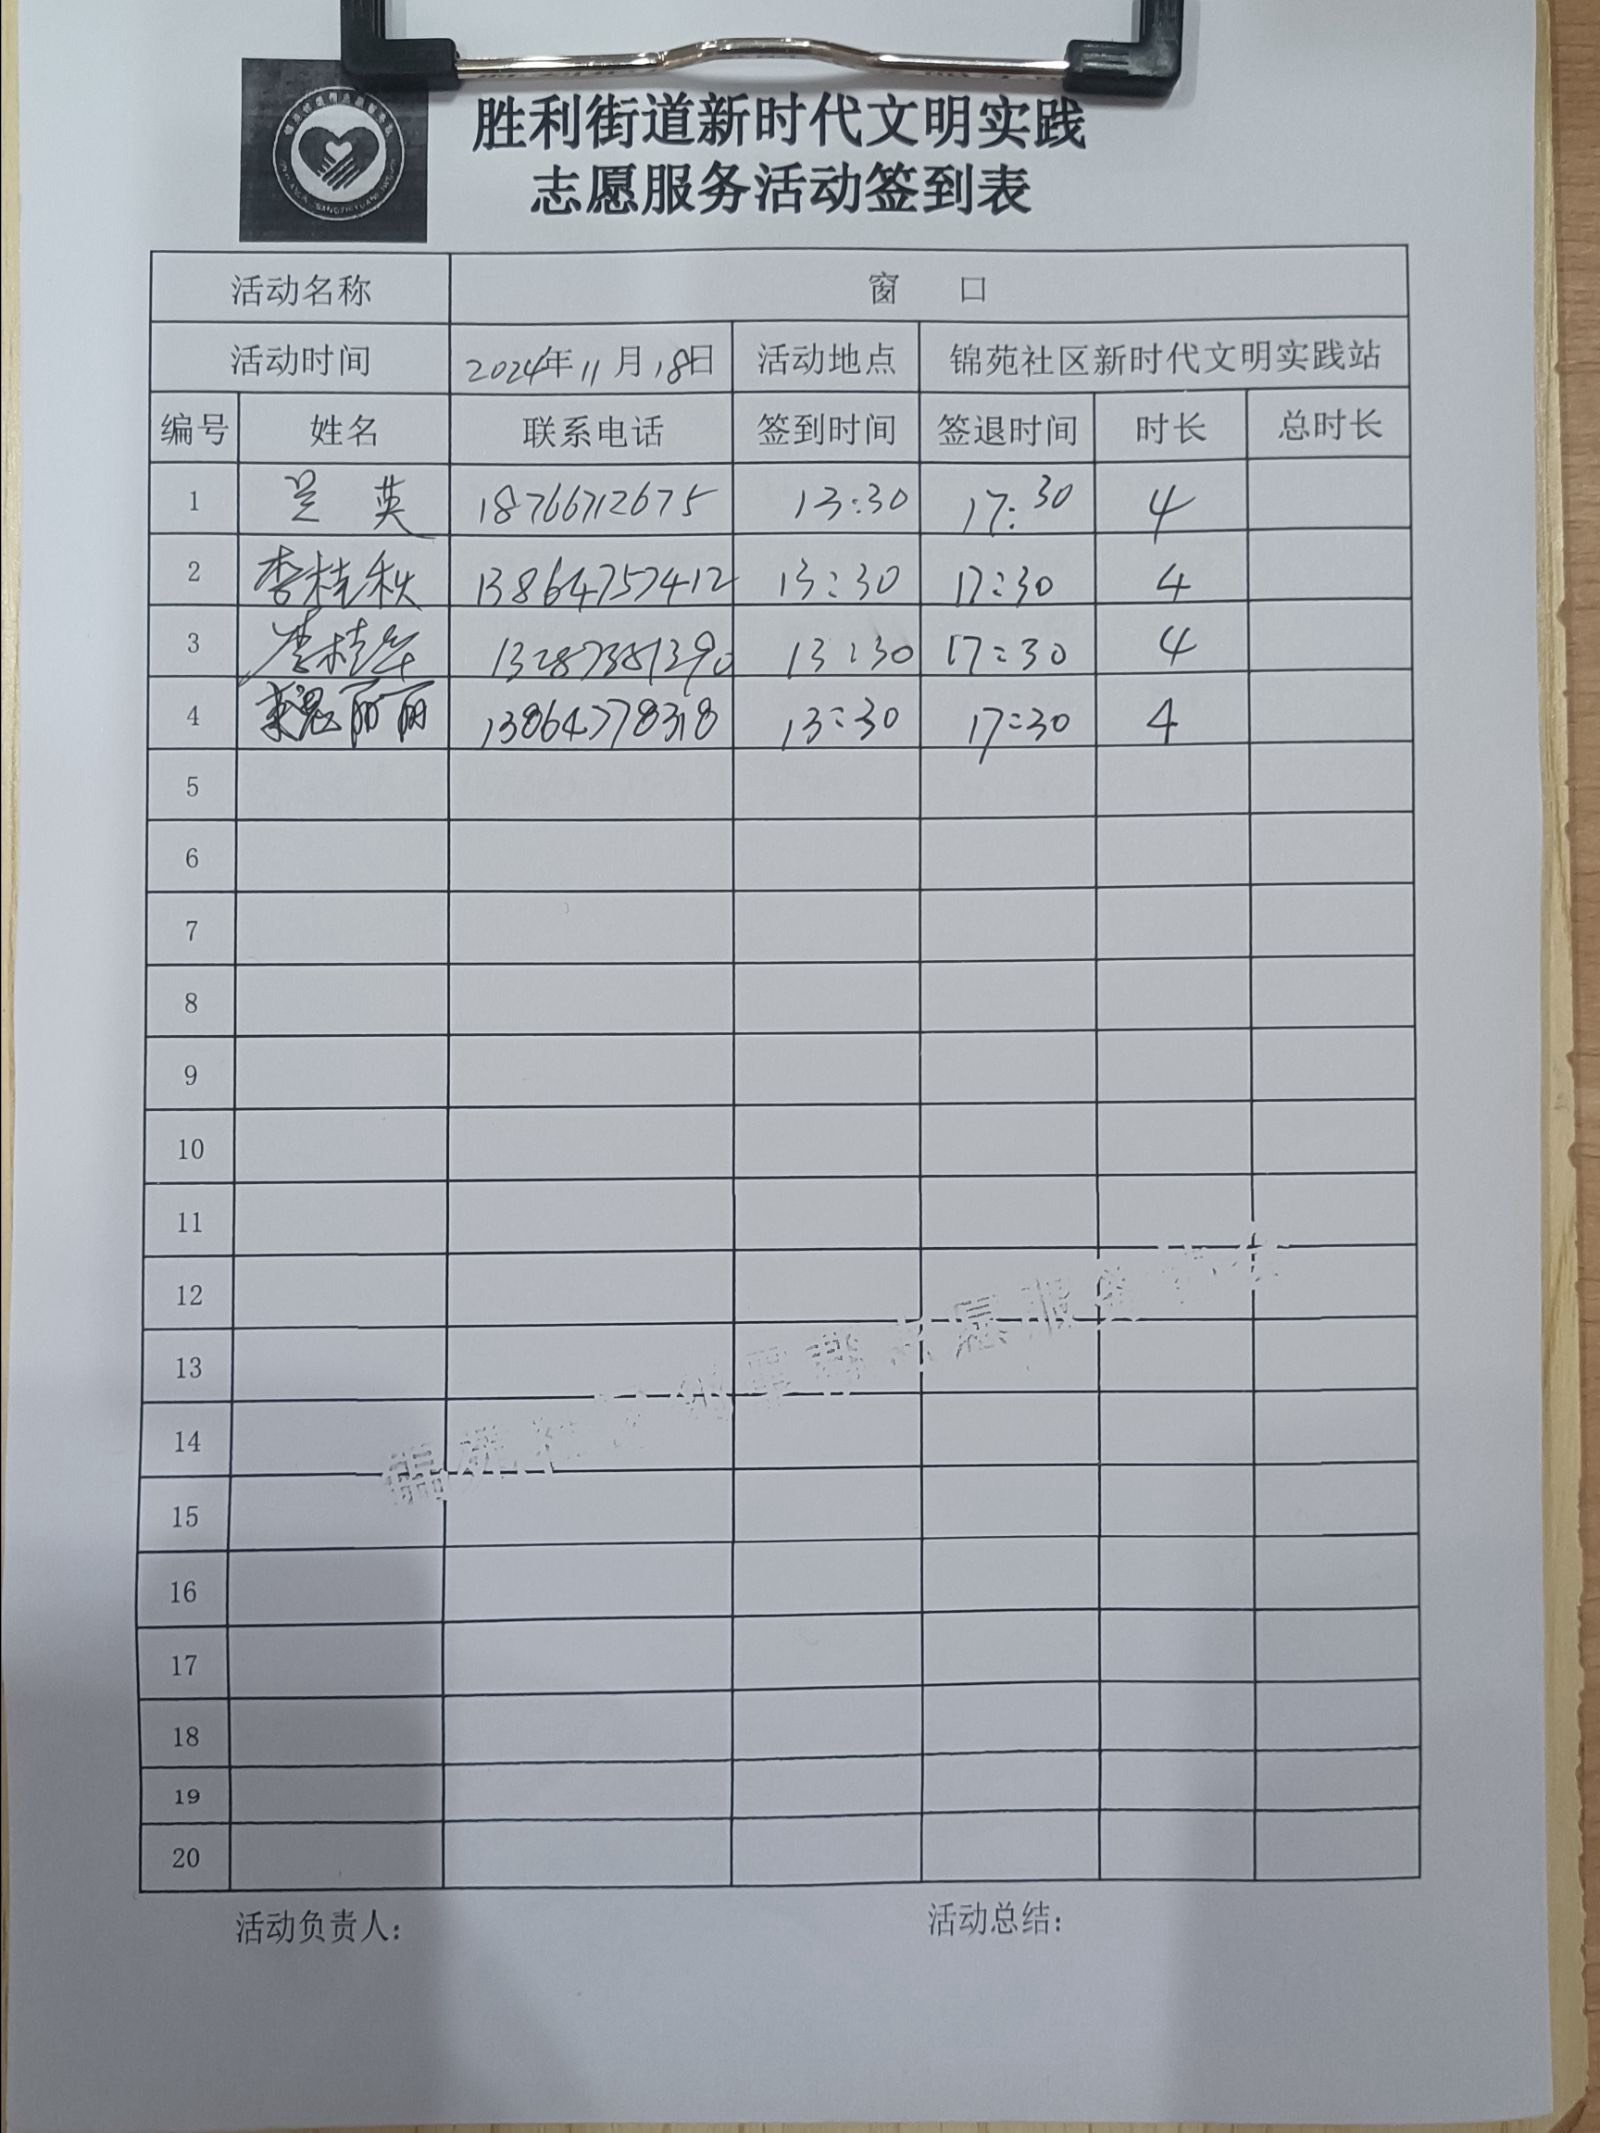 胜利街道新时代文明实践
志愿服务活动签到表
活动名称 窗 口
活动时间 2024年11月18日 活动地点 锦苑社区新时代文明实践站
编号 姓名 联系电话 签到时间 签退时间 时长 总时长
1 吴英 18766712675 13:30 17:30 4
2 李桂秋 13864757412 13:30 17:30 4
3 李桂华 13287381390 13:30 17:30 4
4 魏丽丽 13864778318 13:30 17:30 4
5
6
7
8
9
10
11
12
13
14
15
16
17
18
19
20
活动负责人: 活动总结: